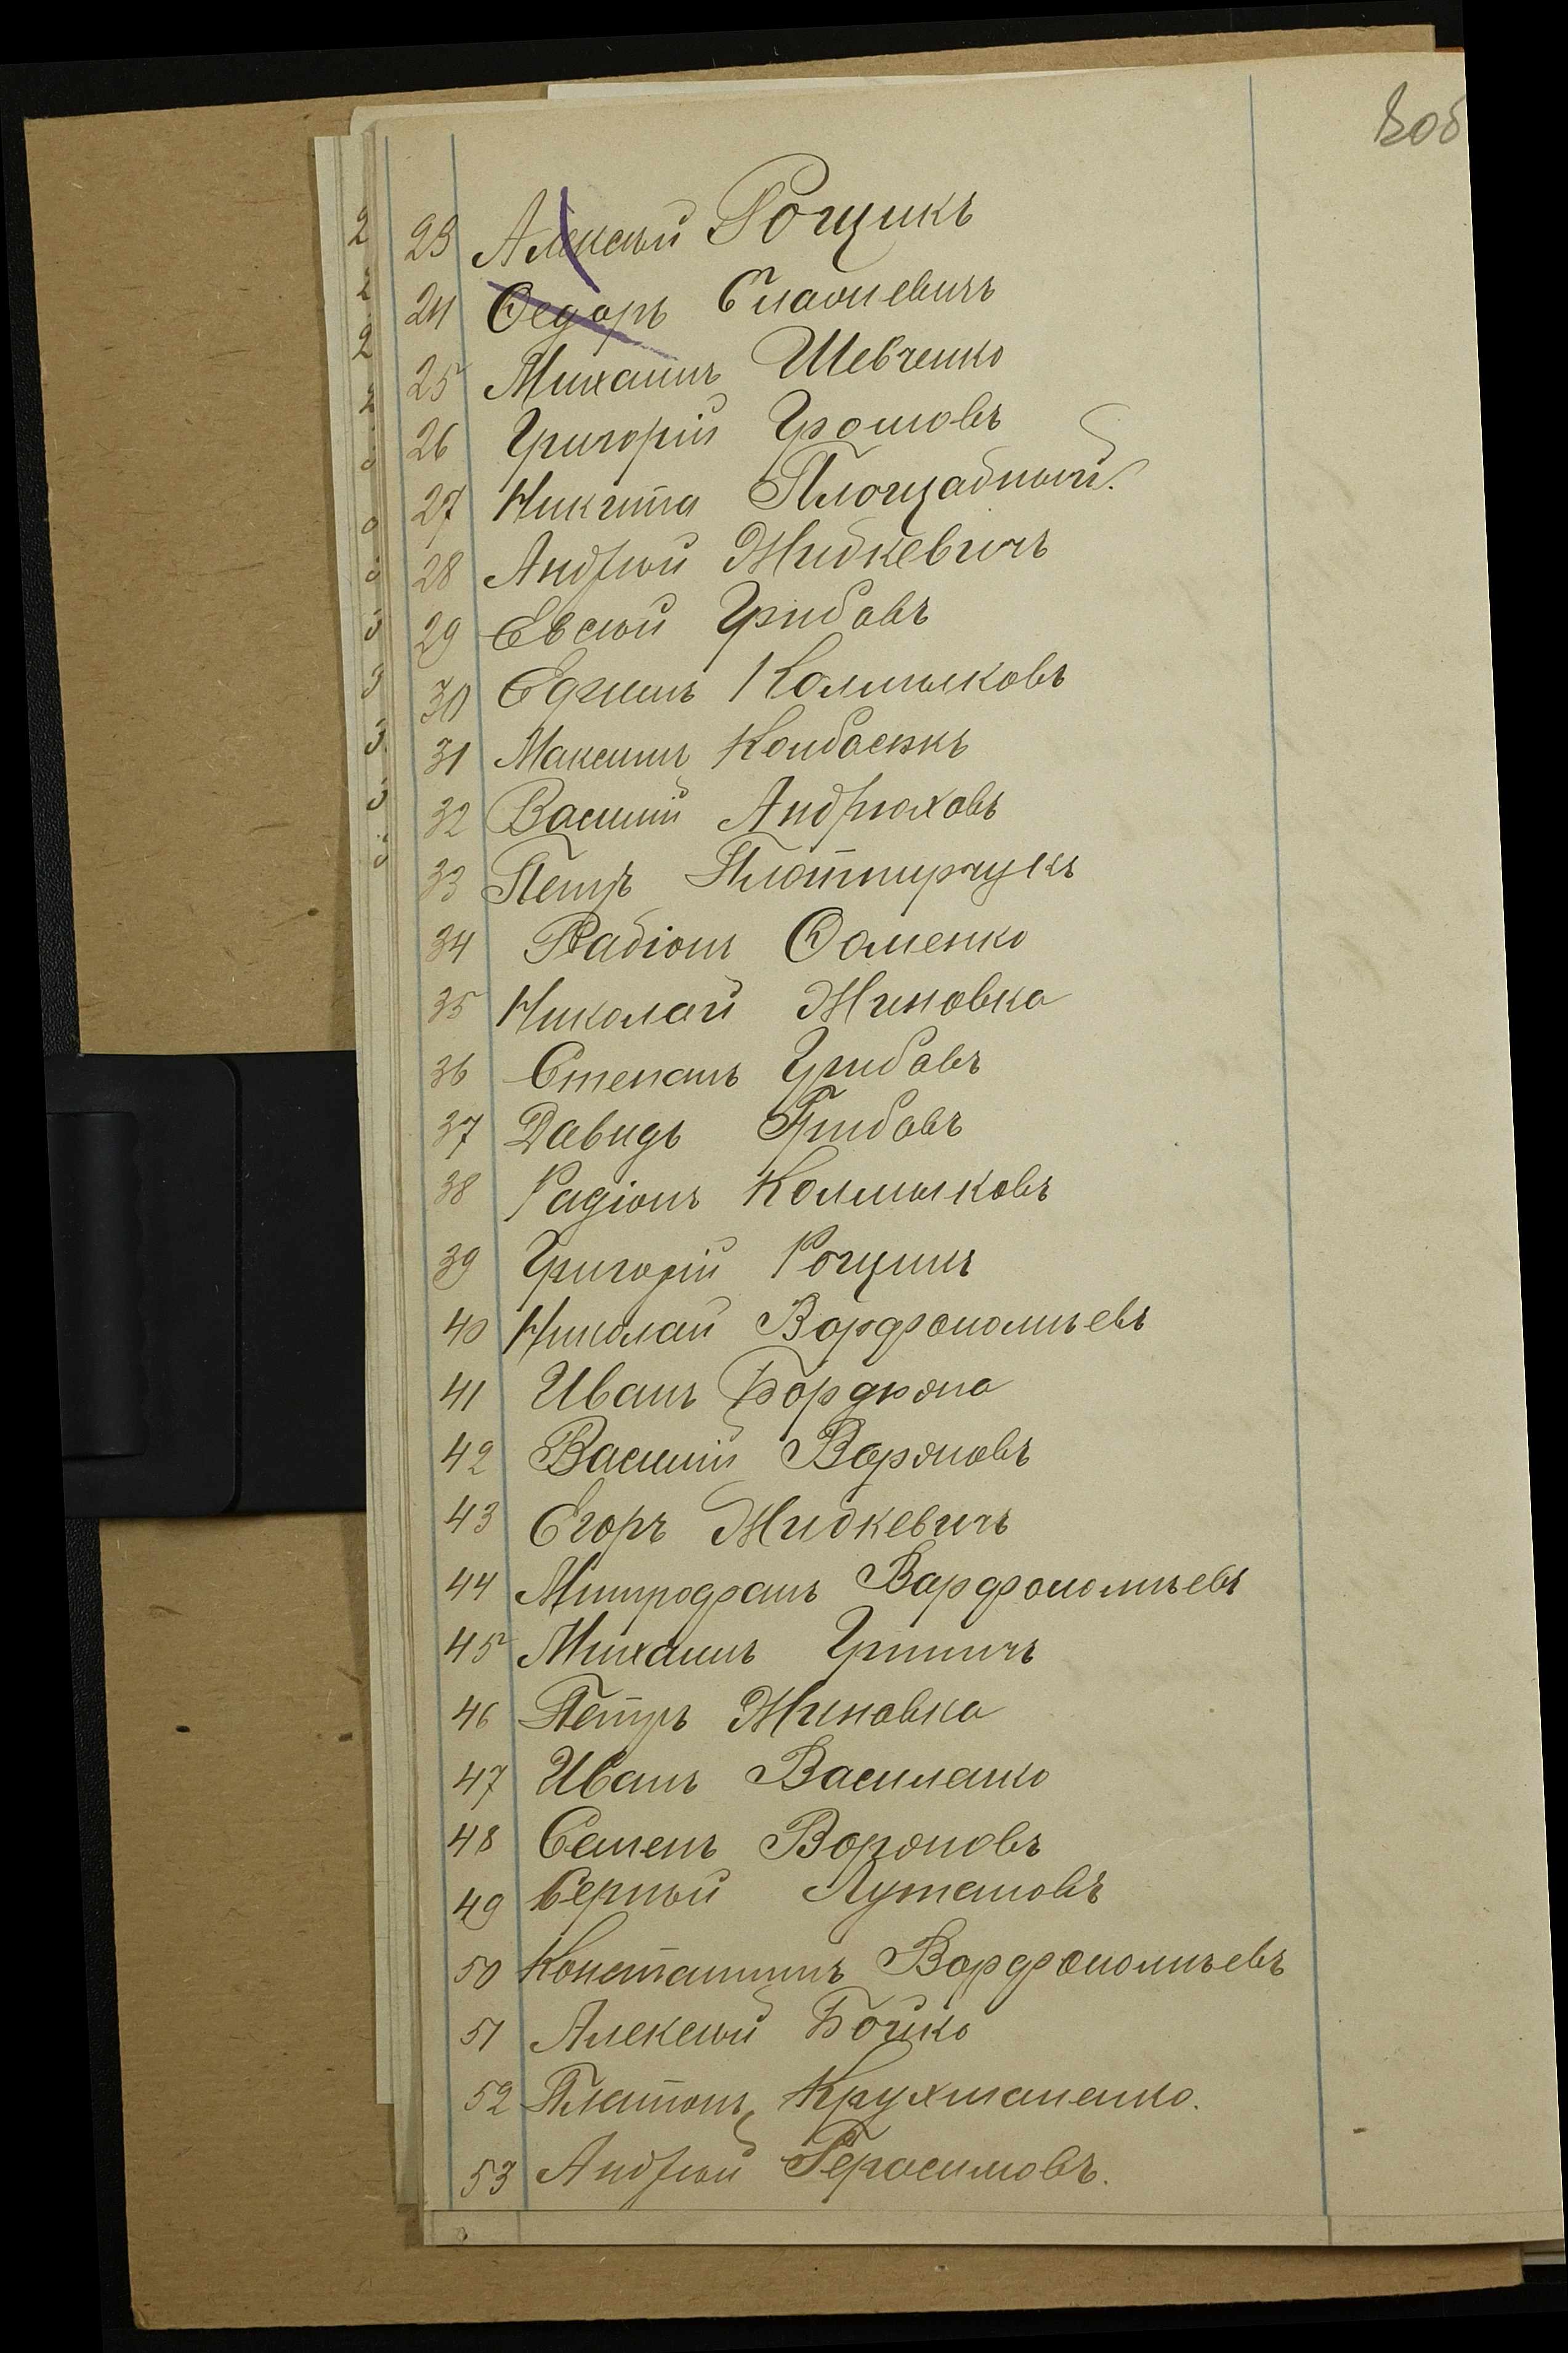 23 Алексѣй Рощикъ
24 Ѳедоръ
25 Михаилъ Шевченко
26 Григорій Громовъ
27 Никита Площадный.
28 Андрѣй Жидкевичъ
29 Евсѣй Грибовъ
30 Ефимъ Колмыковъ
31 Максимъ
32 Василій Андрюховъ
33 Петръ
34 Радіонъ Ѳоменко
35 Николай Жиновка
36 Степанъ Грибовъ
37 Давидъ Грибовъ
38 Радіонъ Колмыковъ
39 Григорій Рощикъ
40 Николай Ворфоломѣевъ
41 Иванъ Бордюна
42 Василій Вороновъ
43 Егоръ Жидкевичъ
44 Митрофанъ Варфоломѣевъ
45 Михаилъ
46 Петръ Жиновка
47 Иванъ Василенко
48 Семенъ Вороновъ
49 Сергѣй
50 Константинъ Ворфоломѣевъ
51 Алексѣй Бойко
52 Платонъ Крухмаленко.
53 Андрѣй Герасимовъ.